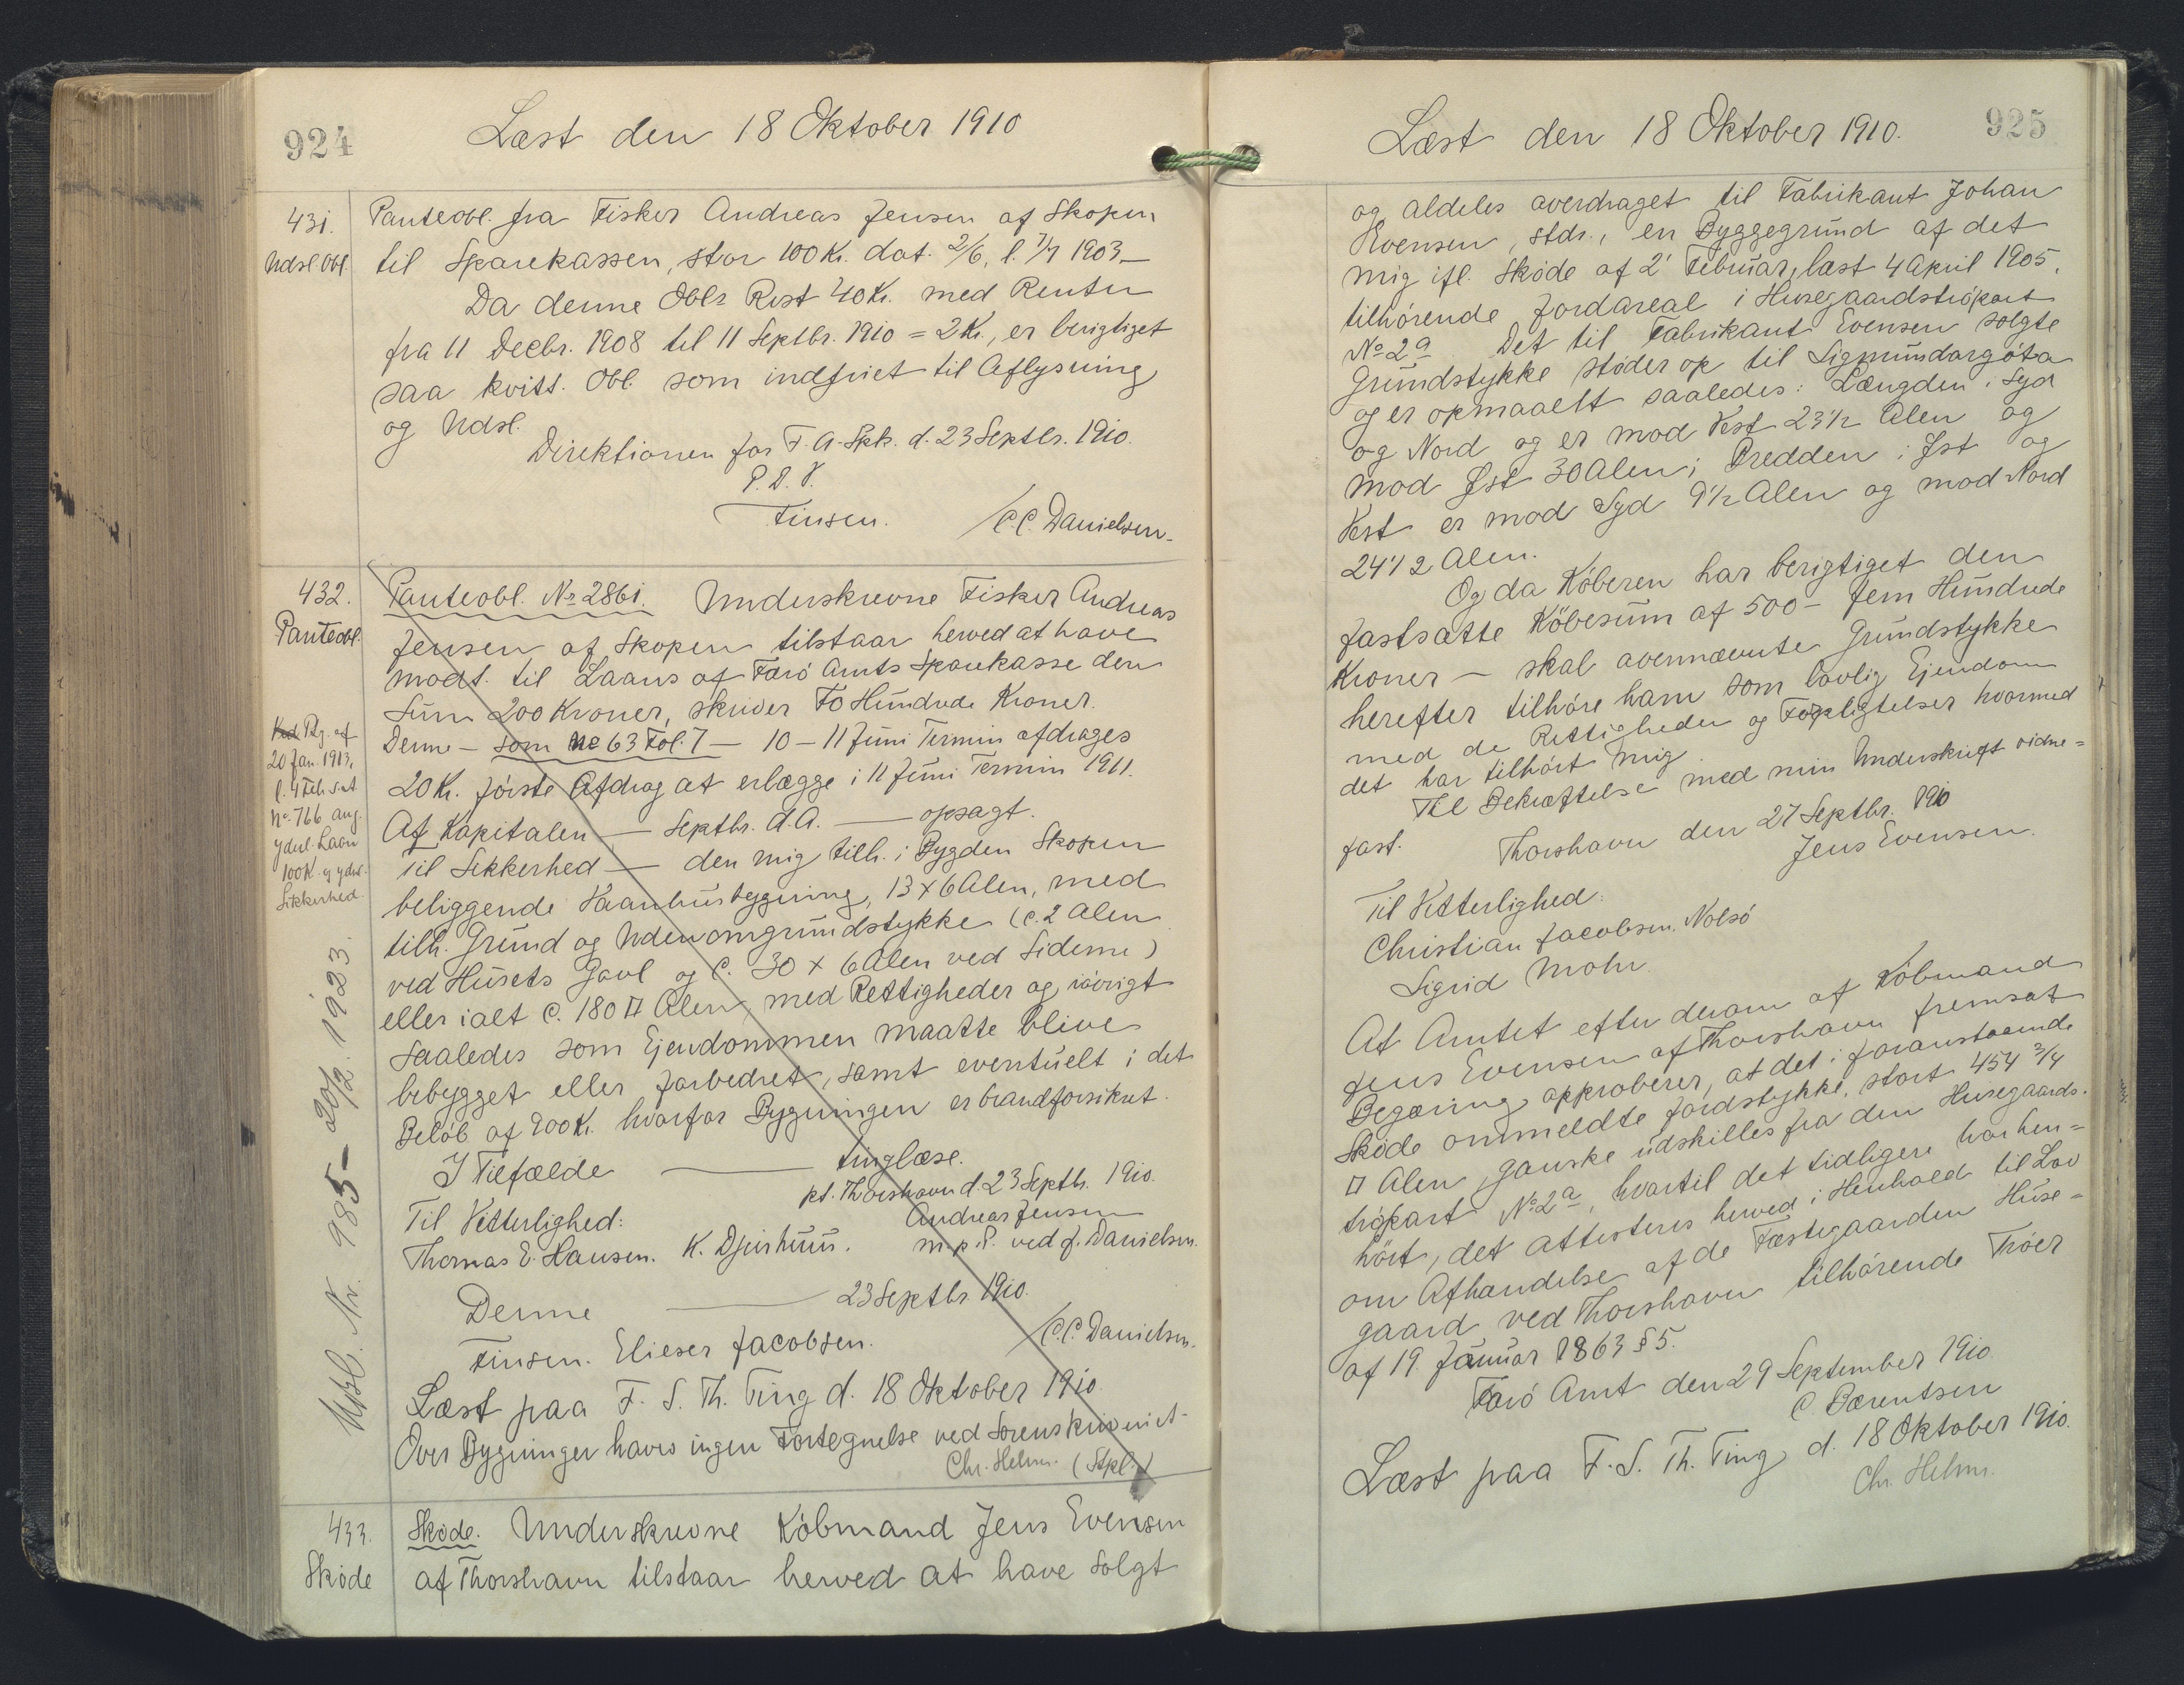 924
Læst den 18 Oktober 1910
431.
Udsl. Obl.
Panteobl. fra Fisker Andreas Jensen af Skopen
til Sparekassen, stor 100 Kr. dat. 2/6, l. 7/7 1903 –
Da denne Obls Rest 40 Kr. med Renter
fra 11 Decbr. 1908 til 11 Septbr. 1910 = 2 Kr., er berigtiget
saa kvitt. Obl. som indfriet til Aflysning
og Udsl.
Direktionen for F. A. Spk. d. 23 Septbr. 1910.
P. D. V.
Finsen. / C. C. Danielsen.
432.
Panteobl.
Panteobl. No 2861. Underskrevne Fisker Andreas
Jensen af Skopen tilstaar herved at have
modt. til Laans af Færø Amts Sparekasse den
Sum 200 Kroner, skriver To Hundrede Kroner.
Denne – som No 63 Fol. 7 – 10 – 11 Juni Termin afdrages
20 Kr. første Afdrag at erlægge i 11 Juni Termin 1911.
Af Kapitalen — Septbr. d. A. — opsagt.
Til Sikkerhed — den mig tilh. i Bygden Skopen
beliggende Vaanhusbygning, 13 x 6 Alen, med
tilh. Grund og Udenomgrundstykke (c. 2 Alen
ved Husets Gavl og c. 30 x 6 Alen ved Siderne)
eller ialt c. 180 □ Alen, med Rettigheder og iøvrigt
saaledes som Ejendommen maatte blive
bebygget eller forbedret, samt eventuelt i det
Beløb af 900 Kr. hvorfor Bygningen er brandforsikret.
I Tilfælde — tinglæse.
pt. Thorshavn d. 23 Septb. 1910.
Til Vitterlighed: Andreas Jensen
Thomas E. Hansen. K. Djurhuus. m. p. P. ved J. Danielsen.
Denne — 23 Septbr. 1910.
Finsen. Elieser Jacobsen. / C. C. Danielsen.
Læst paa F. S. Th. Ting d. 18 Oktober 1910.
Over Bygninger haves ingen Fortegnelse ved Sorenskriveriet.
Chr. Helms. (Stpl.)
Ptg. af
20 Jan. 1913,
l. 4 Feb. s. A.
No. 766 ang.
yderl. Laan
100 K. og yderl.
Sikkerhed.
Udsl. Nr. 985 – 20/2. 1923.
433.
Skøde
Skøde. Underskrevne Købmand Jens Evensen
af Thorshavn tilstaar herved at have solgt
925
Læst den 18 Oktober 1910.
og aldeles averdraget til Fabrikant Johan
Evensen, stds., en Byggegrund af det
mig ifl. Skøde af 2' Februar, læst 4 April 1905,
tilhørende Jordareal i Husegaardstrøpart
No 2a. Det til Fabrikant Evensen solgte
Grundstykke støder op til Sigmundargøta
og er opmaalt saaledes: Længden i Syd
og Nord og er mod Vest 23 1/2 Alen og
mod Øst 30 Alen; Bredden i Øst og
Vest er mod Syd 9 1/2 Alen og mod Nord
24 1/2 Alen.
Og da Køberen har berigtiget den
fastsatte Købesum af 500 – fem Hundrede
Kroner – skal avennævnte Grundstykke
herefter tilhøre ham som lovlig Ejendom
med de Rettigheder og Forpligtelser hvormed
det har tilhørt mig.
Til Bekræftelse med min Underskrift vidne=
fast.
Thorshavn den 27 Septbr. 1910
Jens Evensen.
Til Vitterlighed:
Christian Jacobsen. Nolsø
Sigrid Mohr.
At Amtet efter derom af Købmand
Jens Evensen af Thorshavn fremsat
Begæring approberer, at det i foranstaaende
Skøde ommeldte Jordstykke, stort 454 3/4
□ Alen, ganske udskilles fra den Husegaards.
trøpart No 2a, hvortil det tidligere har hen=
hørt, det attesteres herved i Henhold til Lov
om Afhændelse af de Fæstegaarden Huse=
gaard ved Thorshavn tilhørende Trøer
af 19. Januar 1863 § 5.
Færø Amt den 29 September 1910.
C Bærentsen
Læst paa F. S. Th. Ting d. 18 Oktober 1910.
Chr. Helms.